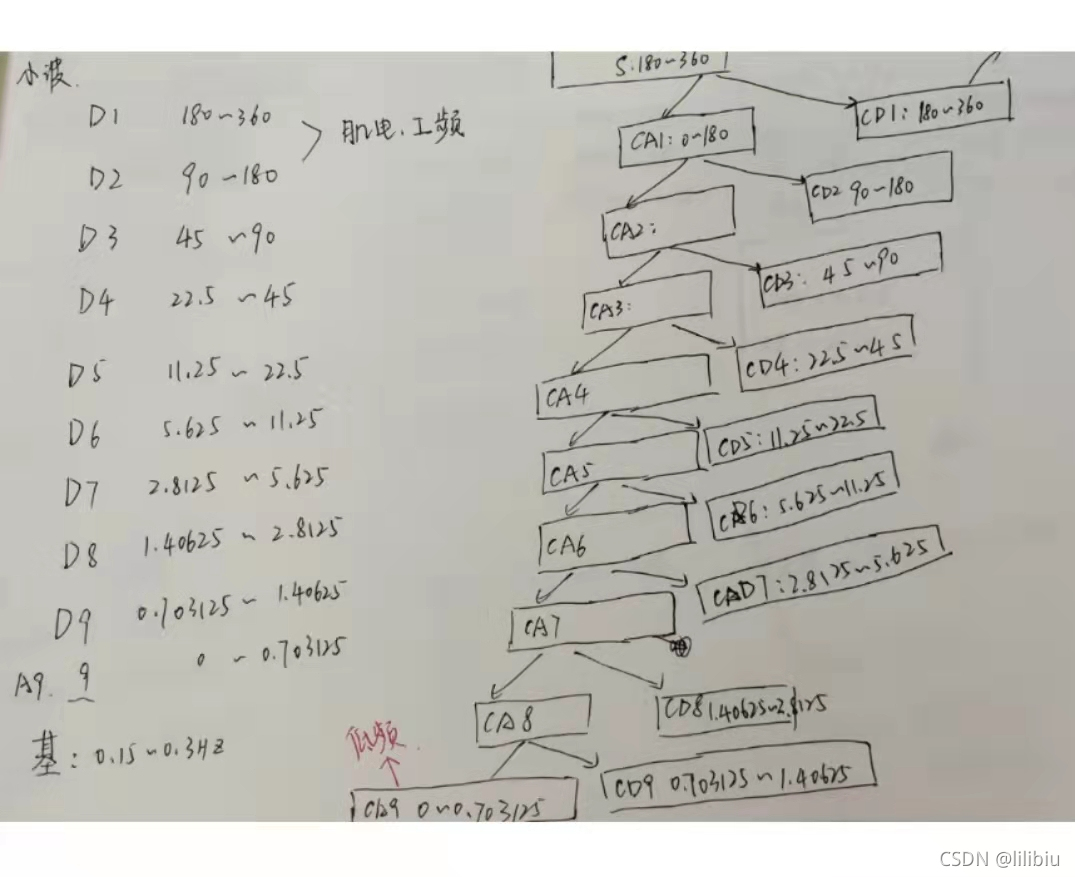 小波.
D1 180~360
D2 90~180
肌电.工频
D3 45~90
D4 22.5~45
D5 11.25~22.5
D6 5.625~11.25
D7 2.8125~5.625
D8 1.40625~2.8125
D9 0.703125~1.40625
0~0.703125
A9. 9
基:0.15~0.3HZ
S:180~360
CA1:0~180
CD1:180~360
CA2:
CD2 90~180
CA3:
CD3:45~90
CA4
CD4:22.5~45
CA5
CD5:11.25~22.5
CA6
CD6:5.625~11.25
CA7
CAD7:2.8125~5.625
CA8
CD8 1.40625~2.8125
低频.
CD9 0.703125~1.40625
0~0.703125
CSDN @lilibiu